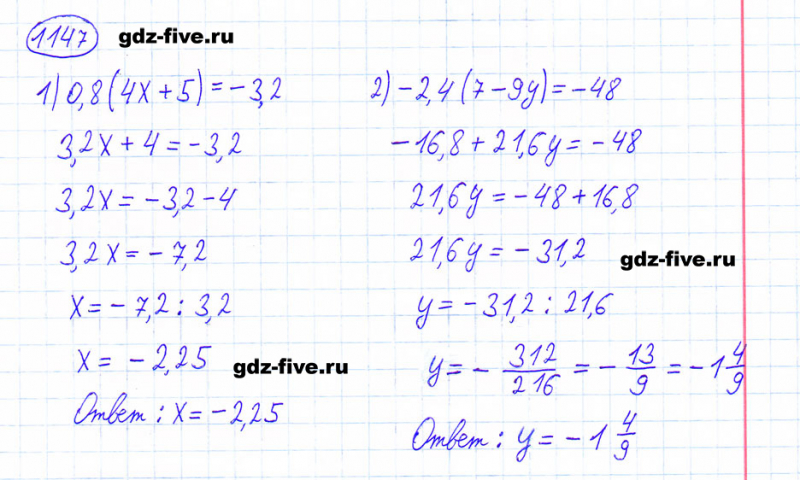 1147 gdz-five.ru
1) 0,8(4x+5)=-3,2
3,2x+4=-3,2
3,2x=-3,2-4
3,2x=-7,2
x=-7,2:3,2
x=-2,25
gdz-five.ru
Ответ: x=-2,25
2) -2,4(7-9y)=-48
-16,8+21,6y=-48
21,6y=-48+16,8
21,6y=-31,2
gdz-five.ru
y=-31,2:21,6
y=-312/216=-13/9=-1 4/9
Ответ: y=-1 4/9